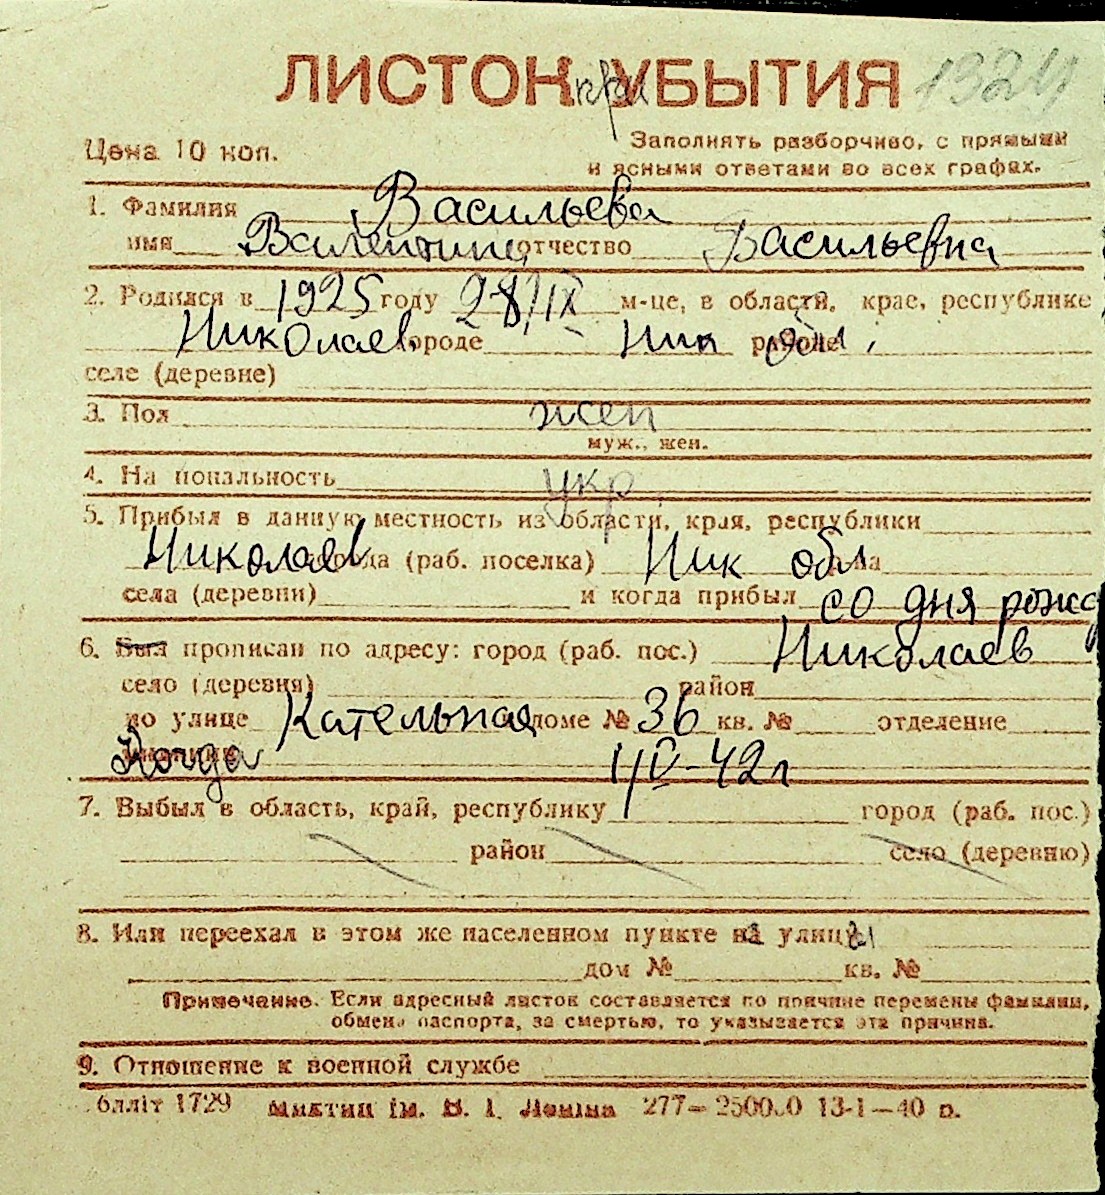 ЛИСТОК при УБЫТИЯ 1324
Цена 10 коп. Заполнять разборчиво, с прямыми
и ясными ответами во всех графах.
1. Фамилия Васильева
имя Валентина отчество Васильевна
2. Родился в 1925 году 28/IX м-це, в области, крае, республике
Николаев городе Ник районе обл.
селе (деревне)
3. Пол жен
муж., жен.
4. Национальность укр.
5. Прибыл в данную местность из области, края, республики
Николаев города (раб. поселка) Ник обл
села (деревни) и когда прибыл со дня рожд
6. Был прописан по адресу: город (раб. пос.) Николаев
село (деревня) район
по улице Кательная доме № 36 кв. № отделение
Когда 1/IV-42г
7. Выбыл в область, край, республику город (раб. пос.)
район село (деревню)
8. Или переехал в этом же населенном пункте на улицу
дом № кв. №
Примечание. Если адресный листок составляется по причине перемены фамилии,
обмена паспорта, за смертью, то указывается эта причина.
9. Отношение к военной службе
блліт 1729 ім. В. І. Леніна 277— 250000 13-1—40 р.